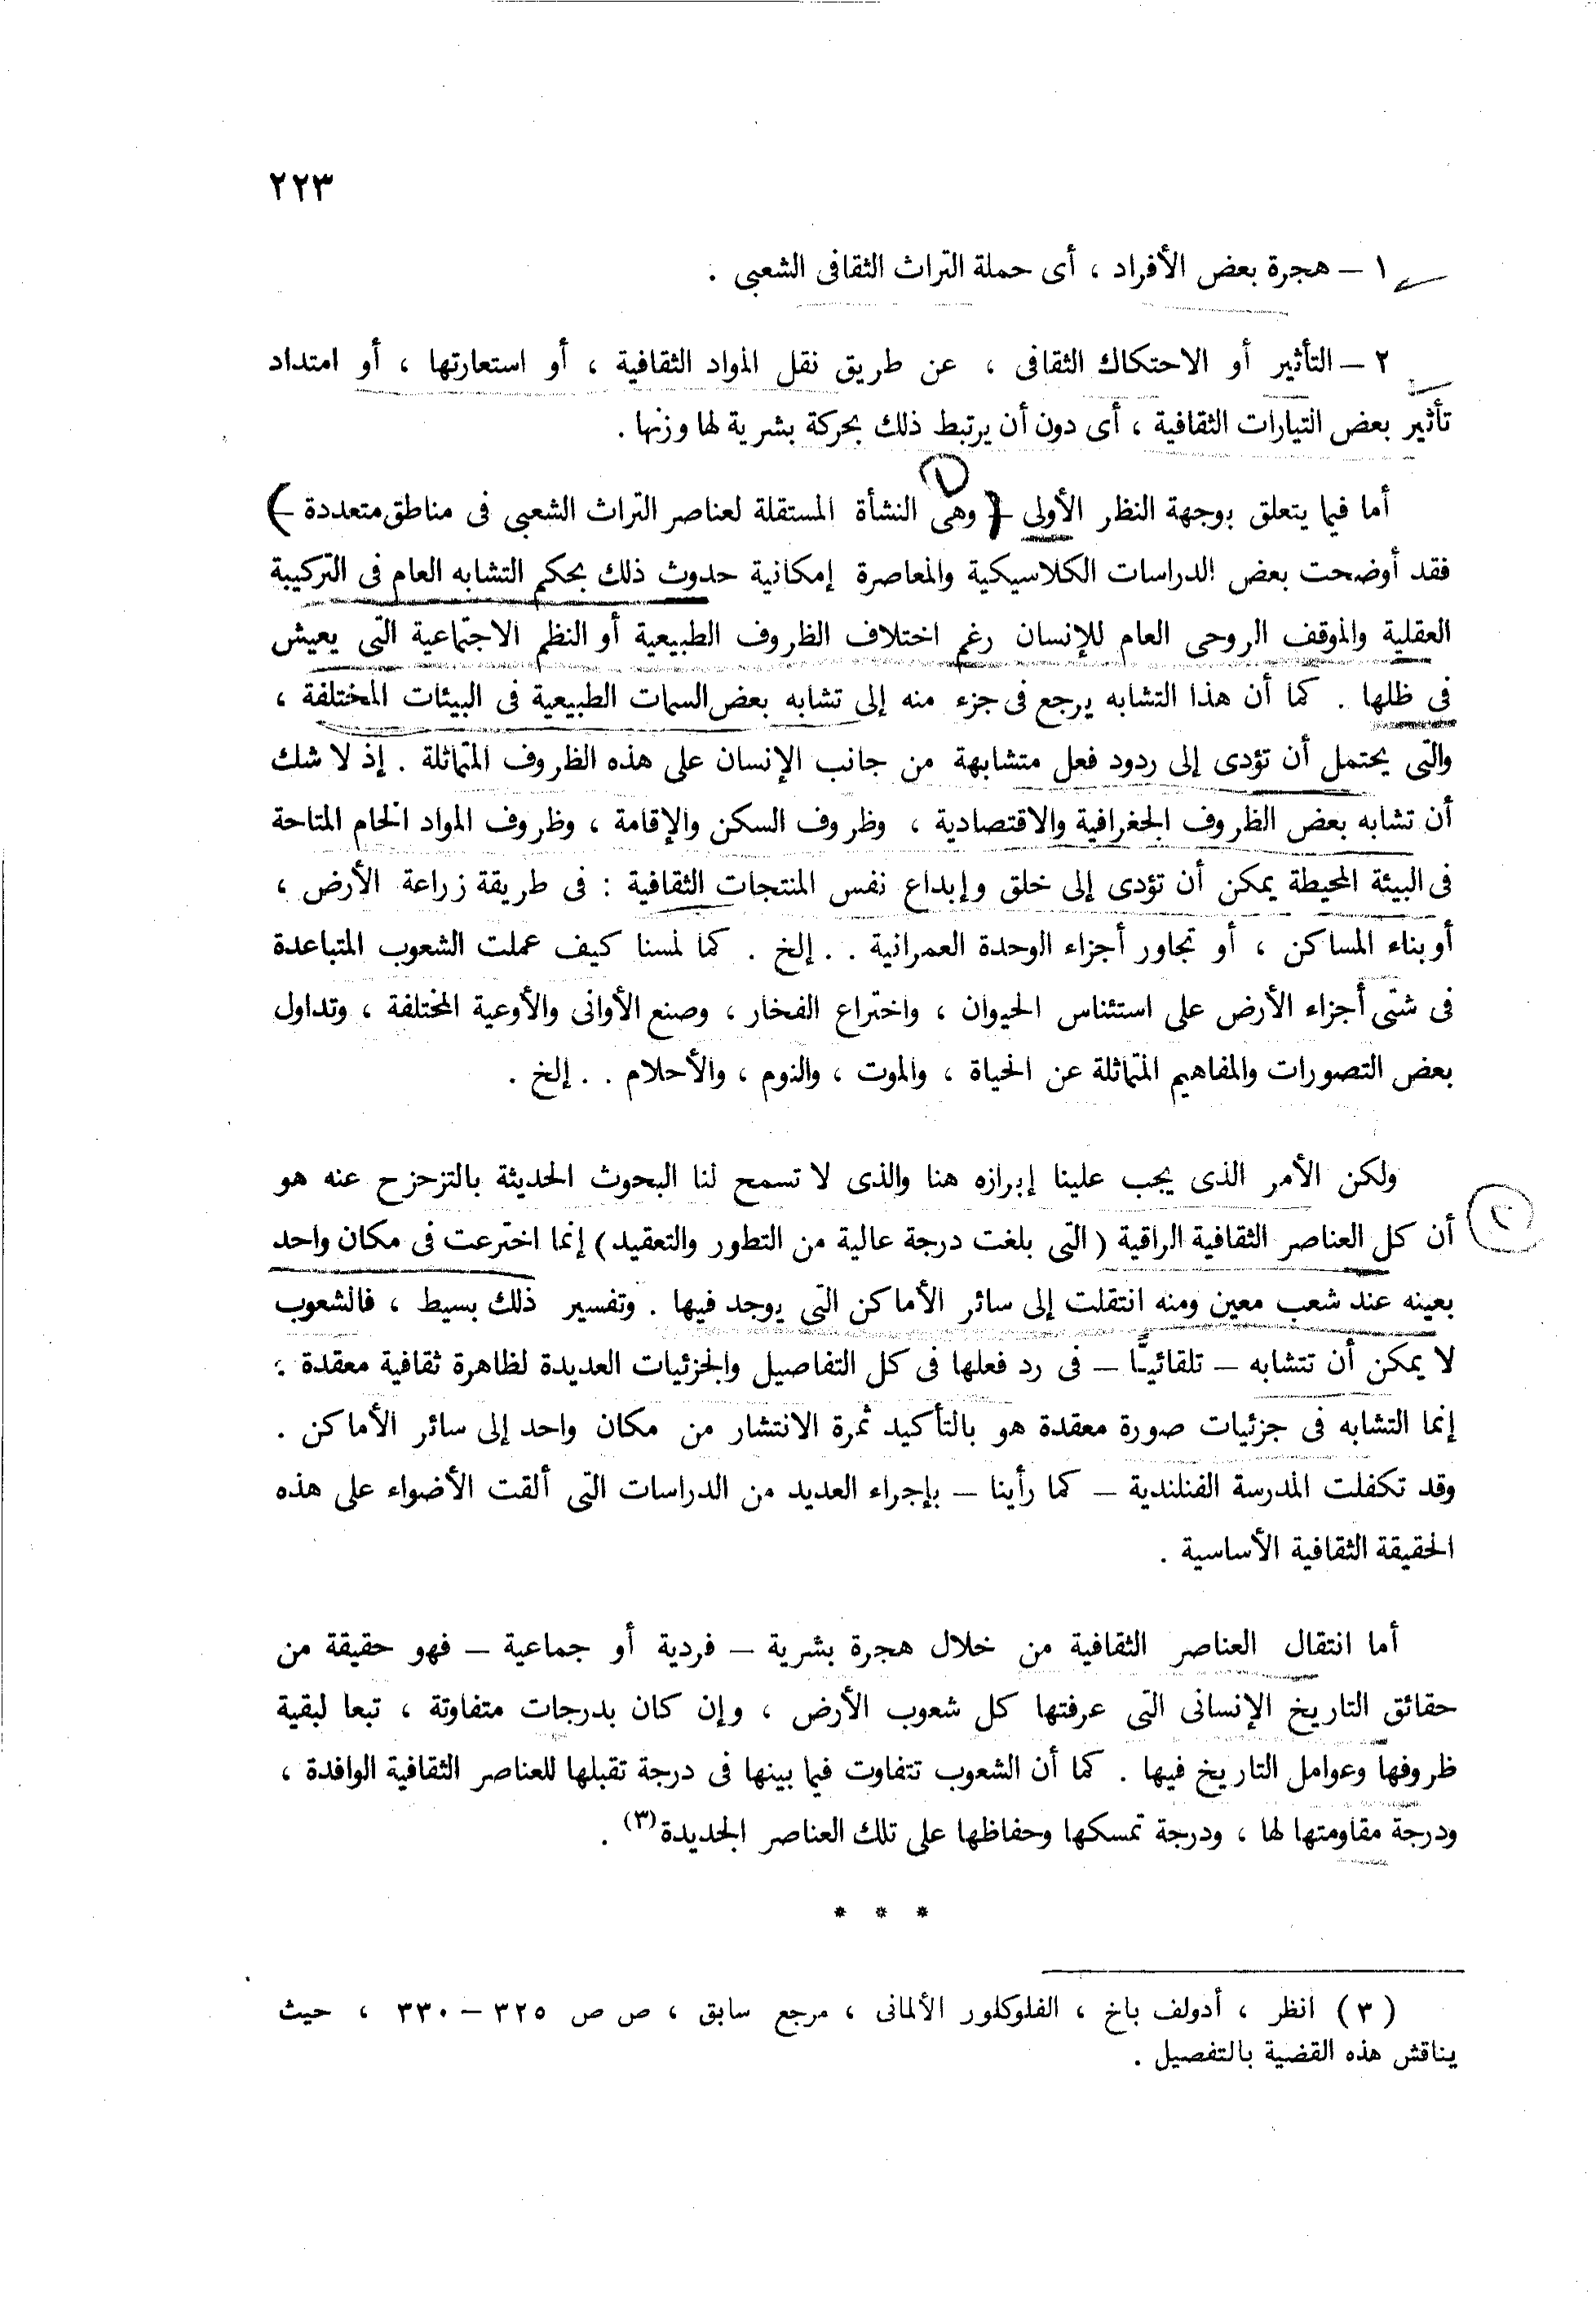 ٢٢٣
١ – هجرة بعض الأفراد ، أى حملة التراث الثقافى الشعبى .
٢ – التأثير أو الاحتكاك الثقافى ، عن طريق نقل المواد الثقافية ، أو استعارتها ، أو امتداد
تأثير بعض التيارات الثقافية ، أى دون أن يرتبط ذلك بحركة بشرية لها وزنها .
١
أما فيما يتعلق بوجهة النظر الأولى – وهى النشأة المستقلة لعناصر التراث الشعبى فى مناطق متعددة –
فقد أوضحت بعض الدراسات الكلاسيكية والمعاصرة إمكانية حدوث ذلك بحكم التشابه العام فى التركيبة
العقلية والموقف الروحى العام للإنسان رغم اختلاف الظروف الطبيعية أو النظم الاجتماعية التى يعيش
فى ظلها . كما أن هذا التشابه يرجع فى جزء منه إلى تشابه بعض السمات الطبيعية فى البيئات المختلفة ،
والتى يحتمل أن تؤدى إلى ردود فعل متشابهة من جانب الإنسان على هذه الظروف المتماثلة . إذ لا شك
أن تشابه بعض الظروف الجغرافية والاقتصادية ، وظروف السكن والإقامة ، وظروف المواد الخام المتاحة
فى البيئة المحيطة يمكن أن تؤدى إلى خلق وإبداع نفس المنتجات الثقافية : فى طريقة زراعة الأرض ،
أو بناء المساكن ، أو تجاور أجزاء الوحدة العمرانية . . إلخ . كما لمسنا كيف عملت الشعوب المتباعدة
فى شتى أجزاء الأرض على استئناس الحيوان ، واختراع الفخار ، وصنع الأوانى والأوعية المختلفة ، وتداول
بعض التصورات والمفاهيم المتماثلة عن الحياة ، والموت ، والنوم ، والأحلام . . إلخ .
ولكن الأمر الذى يجب علينا إبرازه هنا والذى لا تسمح لنا البحوث الحديثة بالتزحزح عنه هو
٢
أن كل العناصر الثقافية الراقية ( التى بلغت درجة عالية من التطور والتعقيد ) إنما اخترعت فى مكان واحد
بعينه عند شعب معين ومنه انتقلت إلى سائر الأماكن التى يوجد فيها . وتفسير ذلك بسيط ، فالشعوب
لا يمكن أن تتشابه – تلقائيًّا – فى رد فعلها فى كل التفاصيل والجزئيات العديدة لظاهرة ثقافية معقدة ؛
إنما التشابه فى جزئيات صورة معقدة هو بالتأكيد ثمرة الانتشار من مكان واحد إلى سائر الأماكن .
وقد تكفلت المدرسة الفنلندية – كما رأينا – بإجراء العديد من الدراسات التى ألقت الأضواء على هذه
الحقيقة الثقافية الأساسية .
أما انتقال العناصر الثقافية من خلال هجرة بشرية – فردية أو جماعية – فهو حقيقة من
حقائق التاريخ الإنسانى التى عرفتها كل شعوب الأرض ، وإن كان بدرجات متفاوتة ، تبعا لبقية
ظروفها وعوامل التاريخ فيها . كما أن الشعوب تتفاوت فيما بينها فى درجة تقبلها للعناصر الثقافية الوافدة ،
ودرجة مقاومتها لها ، ودرجة تمسكها وحفاظها على تلك العناصر الجديدة(٣) .
* * *
( ٣ ) انظر ، أدولف باخ ، الفلوكلور الألمانى ، مرجع سابق ، ص ص ٣٢٥ – ٣٣٠ ، حيث
يناقش هذه القضية بالتفصيل .